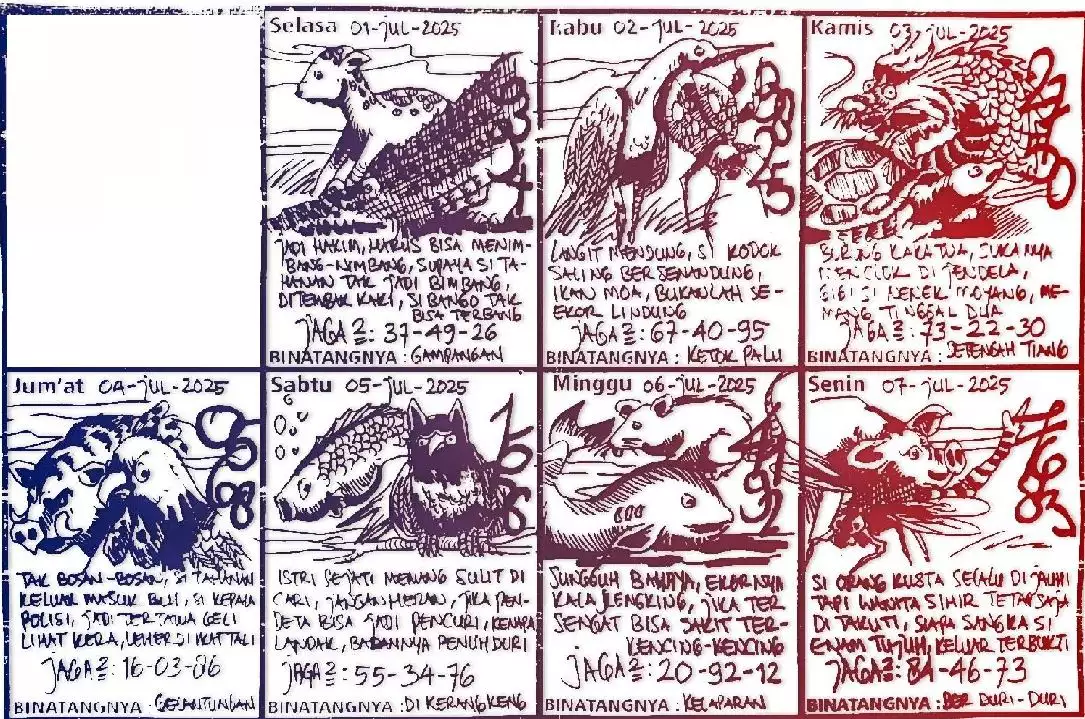 Selasa 01-JUL-2025
JADI HAKIM, HARUS BISA MENIM-
BANG-NIMBANG, SUPAYA SI TA-
HANAN TAK JADI BIMBANG,
DITEMBAK KAKI, SI BANGO TAK
BISA TERBANG
JAGA2: 37-49-26
BINATANGNYA : GAMPANGAN
Rabu 02-JUL-2025
LANGIT MENDUNG, SI KODOK
SALING BERSENANDUNG,
IKAN MOA, BUKANLAH SE-
EKOR LINDUNG
JAGA2: 67-40-95
BINATANGNYA : KETOK PALU
Kamis 03-JUL-2025
BURUNG KAKATUA, SUKANYA
MENCLOK DI JENDELA,
GIGI SI NENEK MOYANG, ME-
MANG TINGGAL DUA
JAGA2: 73-22-30
BINATANGNYA : SETENGAH TIANG
Jum'at 04-JUL-2025
TAK BOSAN-BOSAN, SI TAHANAN
KELUAR MASUK BUI, SI KEPALA
POLISI, JADI TERTAWA GELI
LIHAT KERA, LEHER DI IKAT TALI
JAGA2: 16-03-86
BINATANGNYA : GELANTUNGAN
Sabtu 05-JUL-2025
ISTRI SEJATI MEMANG SULIT DI
CARI, JANGAN HERAN, JIKA PEN-
DETA BISA JADI PENCURI, KENAPA
LANDAK, BADANNYA PENUH DURI
JAGA2: 55-34-76
BINATANGNYA : DI KERANGKENG
Minggu 06-JUL-2025
SUNGGUH BAHAYA, EKORNYA
KALAJENGKING, JIKA TER
SENGAT BISA SAKIT TER-
KENCING-KENCING
JAGA2: 20-92-12
BINATANGNYA : KELAPARAN
Senin 07-JUL-2025
SI ORANG KUSTA SELALU DI JAUHI
TAPI WANITA SIHIR TETAP SAJA
DI TAKUTI, SIAPA SANGKA SI
ENAM TUJUH, KELUAR TERBUKTI
JAGA2: 84-46-73
BINATANGNYA : BER DURI-DURI